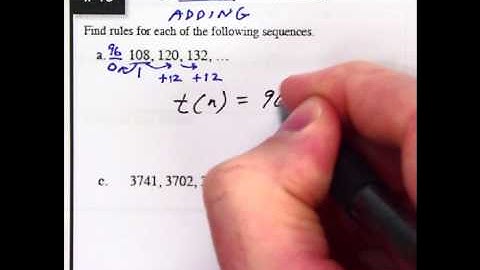 ADDING
Find rules for each of the following sequences.
a. 96 108, 120, 132, ...
0 1 +12 +12
t(n) = 9
c. 3741, 3702,